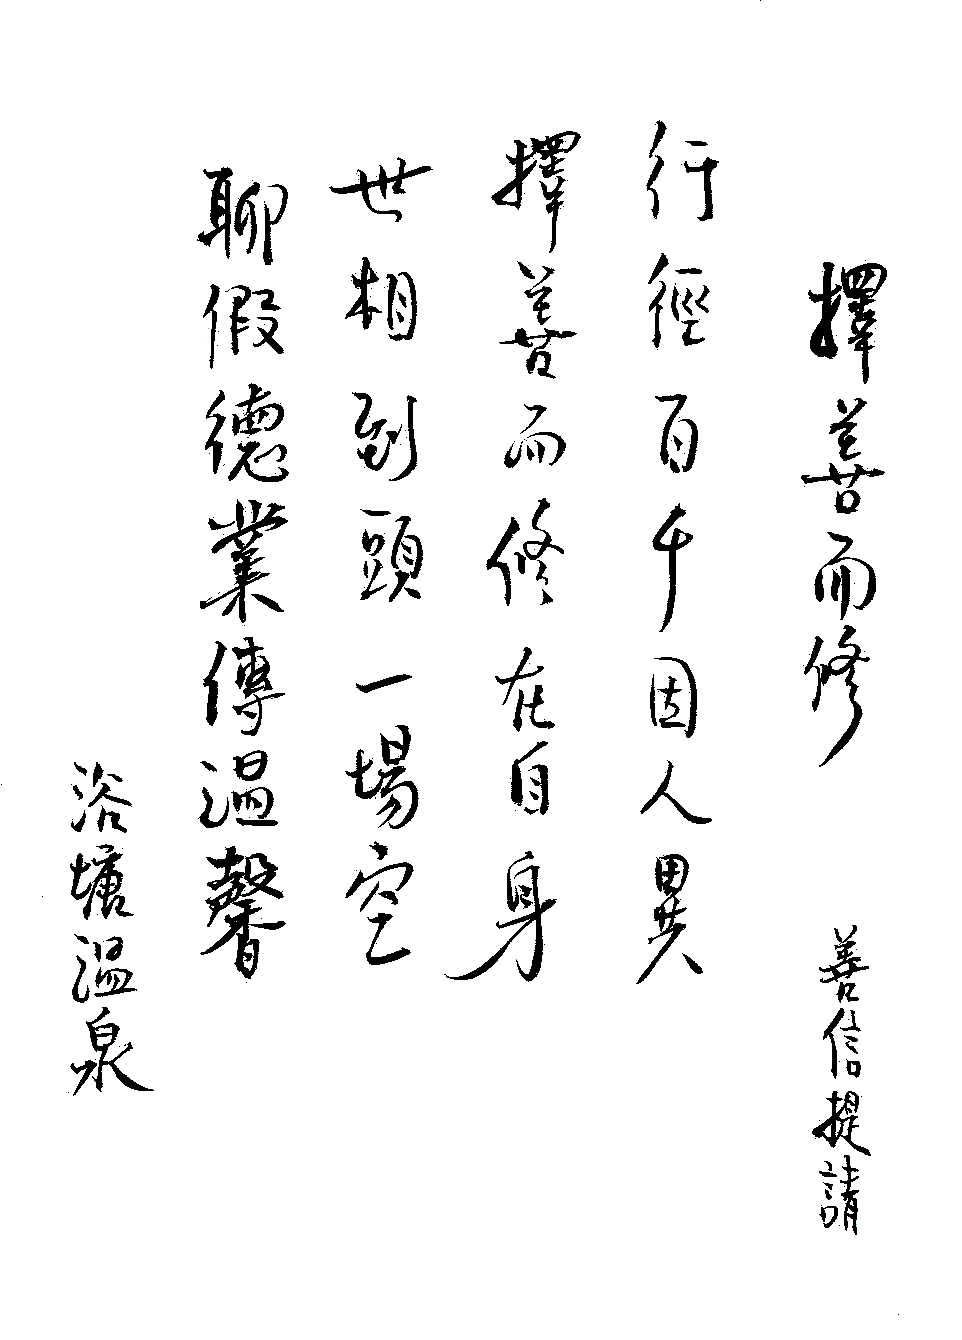 擇善而修
善信提請
行徑百千因人異
擇善而修在自身
世相到頭一場空
聊假德業傳溫馨
浴壚溫泉